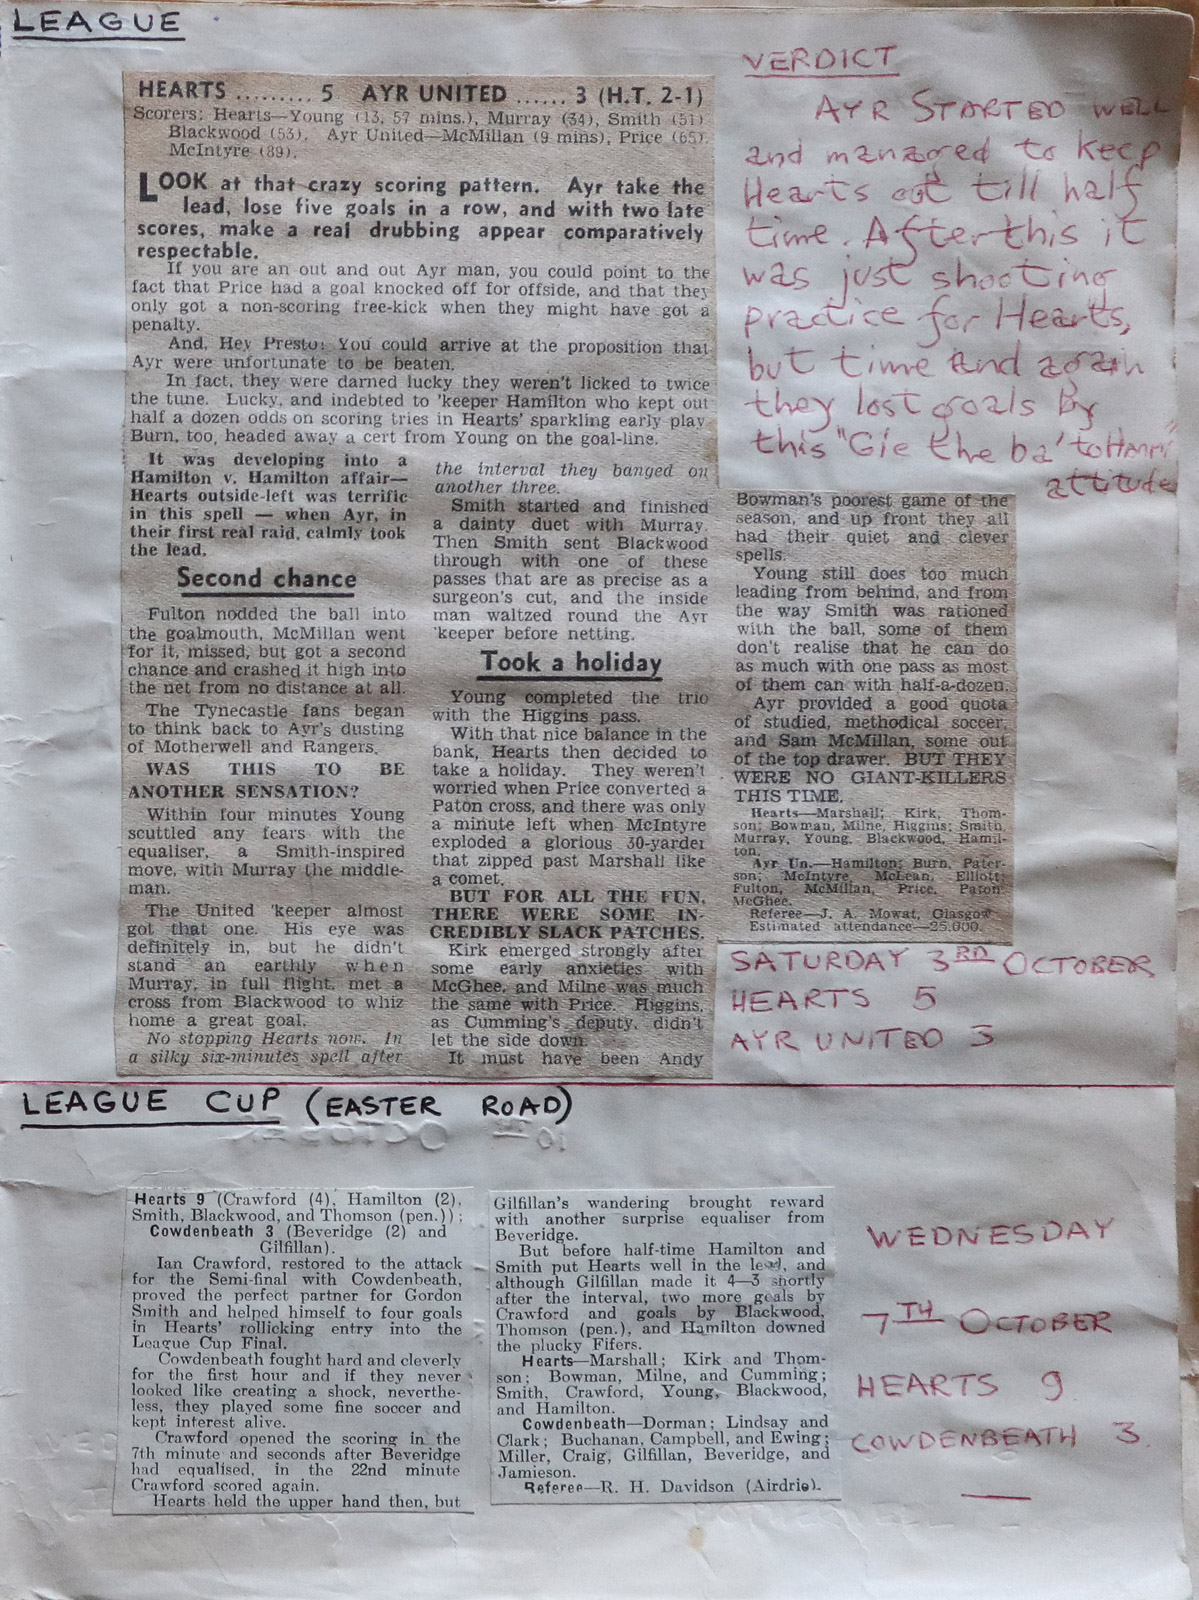 LEAGUE
HEARTS ......... 5 AYR UNITED ...... 3 (H.T. 2-1)
Scorers: Hearts—Young (13, 57 mins.), Murray (34), Smith (51)
Blackwood (53). Ayr United—McMillan (9 mins), Price (65).
McIntyre (89).
LOOK at that crazy scoring pattern. Ayr take the
lead, lose five goals in a row, and with two late
scores, make a real drubbing appear comparatively
respectable.
If you are an out and out Ayr man, you could point to the
fact that Price had a goal knocked off for offside, and that they
only got a non-scoring free-kick when they might have got a
penalty.
And, Hey Presto! You could arrive at the proposition that
Ayr were unfortunate to be beaten.
In fact, they were darned lucky they weren't licked to twice
the tune. Lucky, and indebted to 'keeper Hamilton who kept out
half a dozen odds on scoring tries in Hearts' sparkling early play.
Burn, too, headed away a cert from Young on the goal-line.
It was developing into a
Hamilton v. Hamilton affair—
Hearts outside-left was terrific
in this spell — when Ayr, in
their first real raid, calmly took
the lead.
Second chance
Fulton nodded the ball into
the goalmouth, McMillan went
for it, missed, but got a second
chance and crashed it high into
the net from no distance at all.
The Tynecastle fans began
to think back to Ayr's dusting
of Motherwell and Rangers.
WAS THIS TO BE
ANOTHER SENSATION?
Within four minutes Young
scuttled any fears with the
equaliser, a Smith-inspired
move, with Murray the middle-
man.
The United 'keeper almost
got that one. His eye was
definitely in, but he didn't
stand an earthly when
Murray, in full flight, met a
cross from Blackwood to whiz
home a great goal.
No stopping Hearts now. In
a silky six-minutes spell after
the interval they banged on
another three.
Smith started and finished
a dainty duet with Murray.
Then Smith sent Blackwood
through with one of these
passes that are as precise as a
surgeon's cut, and the inside
man waltzed round the Ayr
'keeper before netting.
Took a holiday
Young completed the trio
with the Higgins pass.
With that nice balance in the
bank, Hearts then decided to
take a holiday. They weren't
worried when Price converted a
Paton cross, and there was only
a minute left when McIntyre
exploded a glorious 30-yarder
that zipped past Marshall like
a comet.
BUT FOR ALL THE FUN,
THERE WERE SOME IN-
CREDIBLY SLACK PATCHES.
Kirk emerged strongly after
some early anxieties with
McGhee, and Milne was much
the same with Price. Higgins,
as Cumming's deputy, didn't
let the side down.
It must have been Andy
Bowman's poorest game of the
season, and up front they all
had their quiet and clever
spells.
Young still does too much
leading from behind, and from
the way Smith was rationed
with the ball, some of them
don't realise that he can do
as much with one pass as most
of them can with half-a-dozen.
Ayr provided a good quota
of studied, methodical soccer,
and Sam McMillan, some out
of the top drawer. BUT THEY
WERE NO GIANT-KILLERS
THIS TIME.
Hearts—Marshall; Kirk, Thom-
son; Bowman, Milne, Higgins; Smith,
Murray, Young, Blackwood, Hamil-
ton.
Ayr Un.—Hamilton; Burn, Pater-
son; McIntyre, McLean, Elliott;
Fulton, McMillan, Price, Paton,
McGhee.
Referee—J. A. Mowat, Glasgow.
Estimated attendance—25,000.
VERDICT
AYR STARTED WELL
and managed to keep
Hearts out till half
time. After this it
was just shooting
practice for Hearts,
but time and again
they lost goals by
this "Gie the ba' to
attitude
SATURDAY 3RD OCTOBER
HEARTS 5
AYR UNITED 3
LEAGUE CUP (EASTER ROAD)
Hearts 9 (Crawford (4), Hamilton (2),
Smith, Blackwood, and Thomson (pen.));
Cowdenbeath 3 (Beveridge (2) and
Gilfillan).
Ian Crawford, restored to the attack
for the Semi-final with Cowdenbeath,
proved the perfect partner for Gordon
Smith and helped himself to four goals
in Hearts' rollicking entry into the
League Cup Final.
Cowdenbeath fought hard and cleverly
for the first hour and if they never
looked like creating a shock, neverthe-
less, they played some fine soccer and
kept interest alive.
Crawford opened the scoring in the
7th minute and seconds after Beveridge
had equalised, in the 22nd minute
Crawford scored again.
Hearts held the upper hand then, but
Gilfillan's wandering brought reward
with another surprise equaliser from
Beveridge.
But before half-time Hamilton and
Smith put Hearts well in the lead, and
although Gilfillan made it 4—3 shortly
after the interval, two more goals by
Crawford and goals by Blackwood,
Thomson (pen.), and Hamilton downed
the plucky Fifers.
Hearts—Marshall; Kirk and Thom-
son; Bowman, Milne, and Cumming;
Smith, Crawford, Young, Blackwood,
and Hamilton.
Cowdenbeath—Dorman; Lindsay and
Clark; Buchanan, Campbell, and Ewing;
Miller, Craig, Gilfillan, Beveridge, and
Jamieson.
Referee—R. H. Davidson (Airdrie).
WEDNESDAY
7TH OCTOBER
HEARTS 9
COWDENBEATH 3